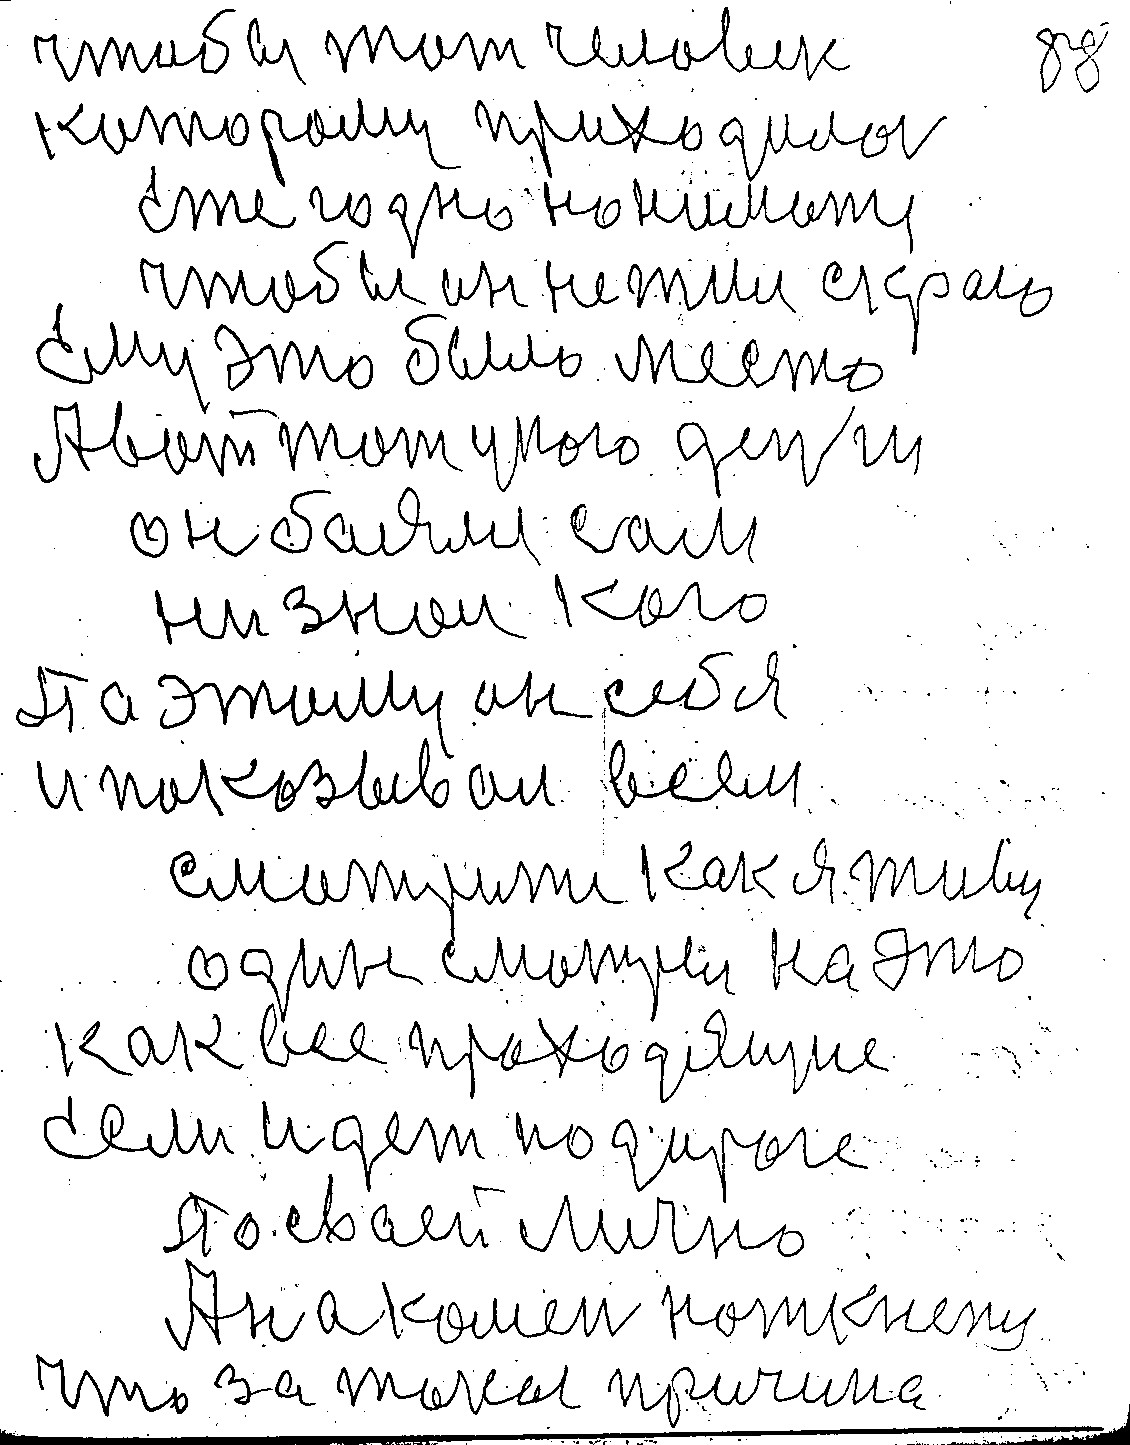 чтобы тот человек 88
которому приходилос
Ежегодно нонимать
чтобы он не жил скраю
Ему это было место
А вот тот у кого деньги
он баялся сам
ни знал кого
Па этому он себя
и показывал всем
сматрите как я живу
один смотрел на это
как все проходящие
Если идет по дироге
По сваей лично
А на камен наткнету
что за такая причина